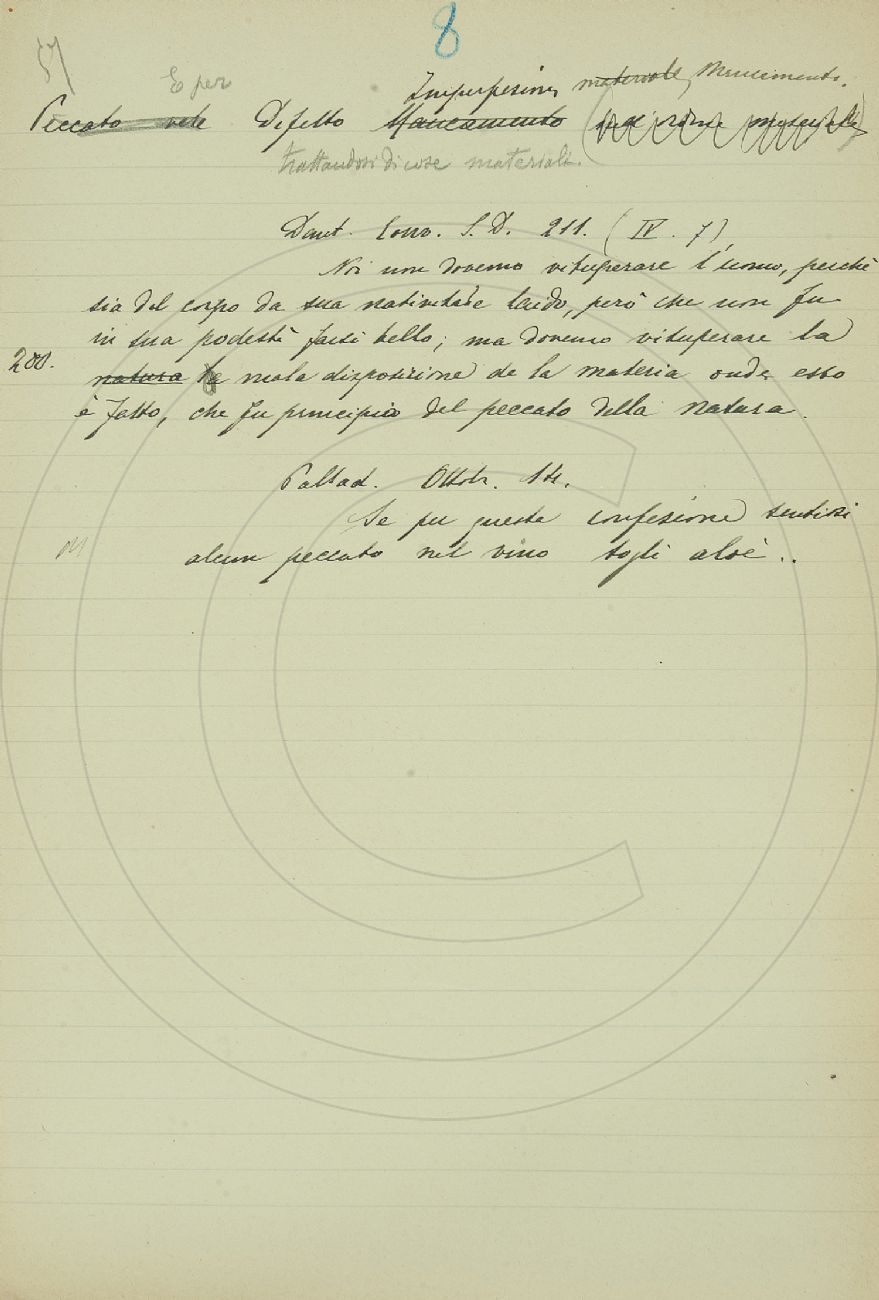 8
E per
Imperfezione, materiale, Mancimento.
Peccato vale Difetto Mancamento
trattandosi di cose materiali.
Dant. Conv. S. D. 211. (IV. 7),
Noi non dovemo vituperare l'uomo, perchè
sia del corpo da sua nativitade laido, però che non fu
in sua podestà farsi bello; ma dovemo vituperare la
200.
natura la mala disposizione de la materia onde esso
è fatto, che fu principio del peccato della natura.
Pallad. Ottob. 14.
Se per queste confezione sentirsi
M
alcun peccato nel vino togli aloè..